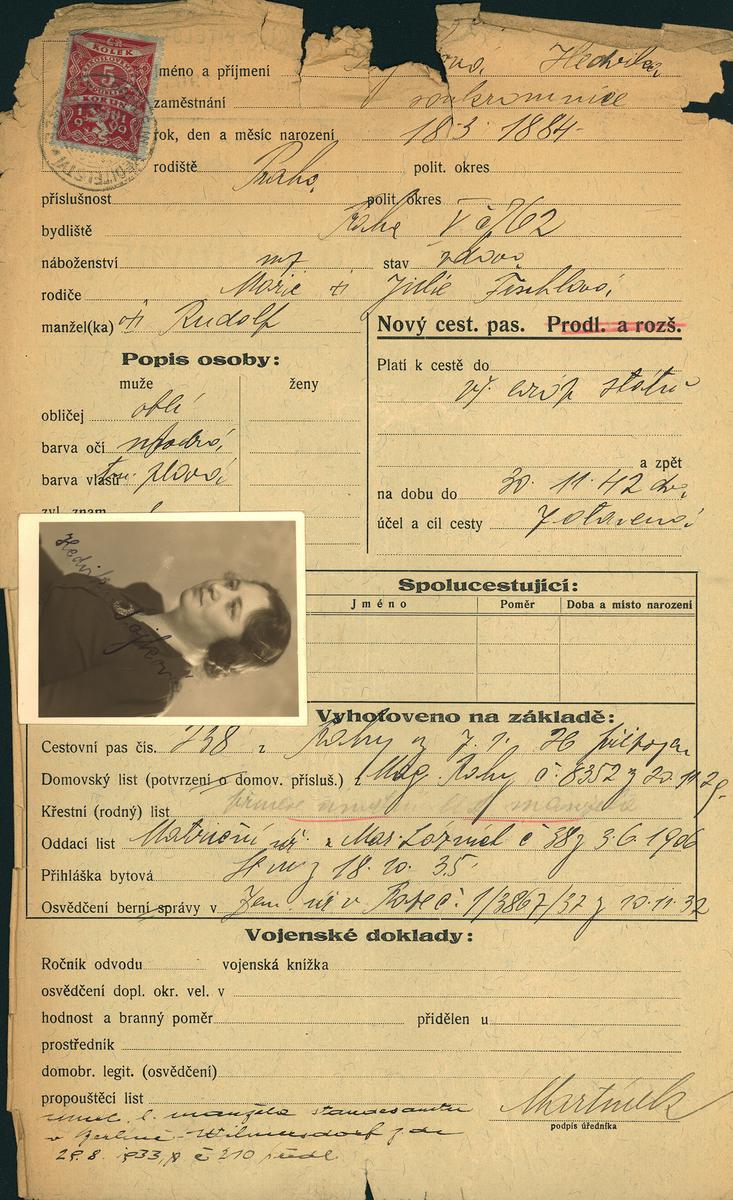 KOLEK
5
KORUN
méno a příjmení Hedvika
zaměstnání soukromnice
rok, den a měsíc narození 18 3. 1884
rodiště Praha polit. okres
příslušnost polit okres
bydliště Praha V č 62
náboženství stav vdova
rodiče Julie Fischlová
manžel(ka) Rudolf
Nový cest. pas. Prodl. a rozš.
Popis osoby:
muže ženy
obličej oblý
barva očí modrá
barva vlasů plavá
zvl. znam
Platí k cestě do
evrop států
a zpět
na dobu do 30. 11. 42
účel a cíl cesty zotavená
Hedvika
Spolucestující:
Jméno Poměr Doba a místo narození
Vyhotoveno na základě:
Cestovní pas čís. 238 z Prahy
Domovský list (potvrzení o domov. přísluš.) z Mag. Prahy č 8352 z 20. 11 29.
Křestní (rodný) list
Oddací list Matriční z č 38 z 3. 6. 1906
Přihláška bytová z 18. 10. 35.
Osvědčení berní správy v v Praze č. 1/3867/37 z 10. 11. 37
Vojenské doklady:
Ročník odvodu vojenská knížka
osvědčení dopl. okr. vel. v
hodnost a branný poměr přidělen u
prostředník
domobr. legit. (osvědčení)
propouštěcí list
úmrt. l. manžela standesamtu
v Berlině-Wilmersdorf z de
29. 8. 1933, č 210 předl.
Martínek
podpis úředníka